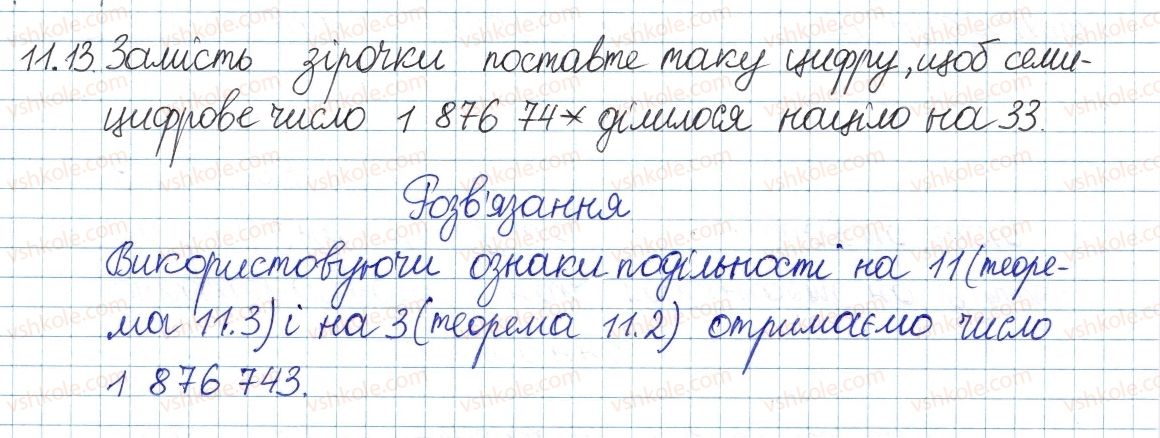 11.13. Замість зірочки поставте таку цифру, щоб семи-
цифрове число 1 876 74* ділилося націло на 33.
Розв'язання
Використовуючи ознаки подільності на 11 (теоре-
ма 11.3) і на 3 (теорема 11.2) отримаємо число
1 876 743.